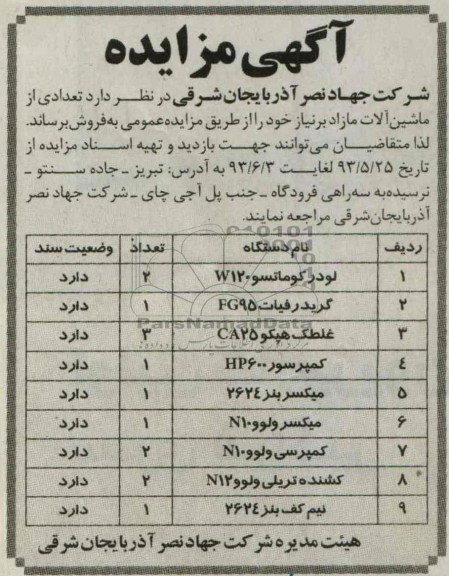 آگهی مزایده
شرکت جهاد نصر آذربایجان شرقی در نظر دارد تعدادی از
ماشین‌آلات مازاد برنیاز خود را از طریق مزایده عمومی به فروش برساند.
لذا متقاضیان می‌توانند جهت بازدید و تهیه اسناد مزایده از
تاریخ ۹۳/۵/۲۵ لغایت ۹۳/۶/۳ به آدرس: تبریز ـ جاده سنتو ـ
نرسیده به سه‌راهی فرودگاه ـ جنب پل آجی چای ـ شرکت جهاد نصر
آذربایجان شرقی مراجعه نمایند.
ردیف نام دستگاه تعداد وضعیت سند
۱ لودر کوماتسو W۱۲۰ ۲ دارد
۲ گریدر فیات FG۹۵ ۱ دارد
۳ غلطک هپکو CA۲۵ ۳ دارد
ParsNamadData
٤ کمپرسور HP۶۰۰ ۱ دارد
۵ میکسر بنز ۲۶۲٤ ۱ دارد
۶ میکسر ولوو N۱۰ ۱ دارد
۷ کمپرسی ولوو N۱۰ ۲ دارد
۸ کشنده تریلی ولوو N۱۲ ۲ دارد
۹ نیم کف بنز ۲۶۲٤ ۱ دارد
هیئت مدیره شرکت جهاد نصر آذربایجان شرقی